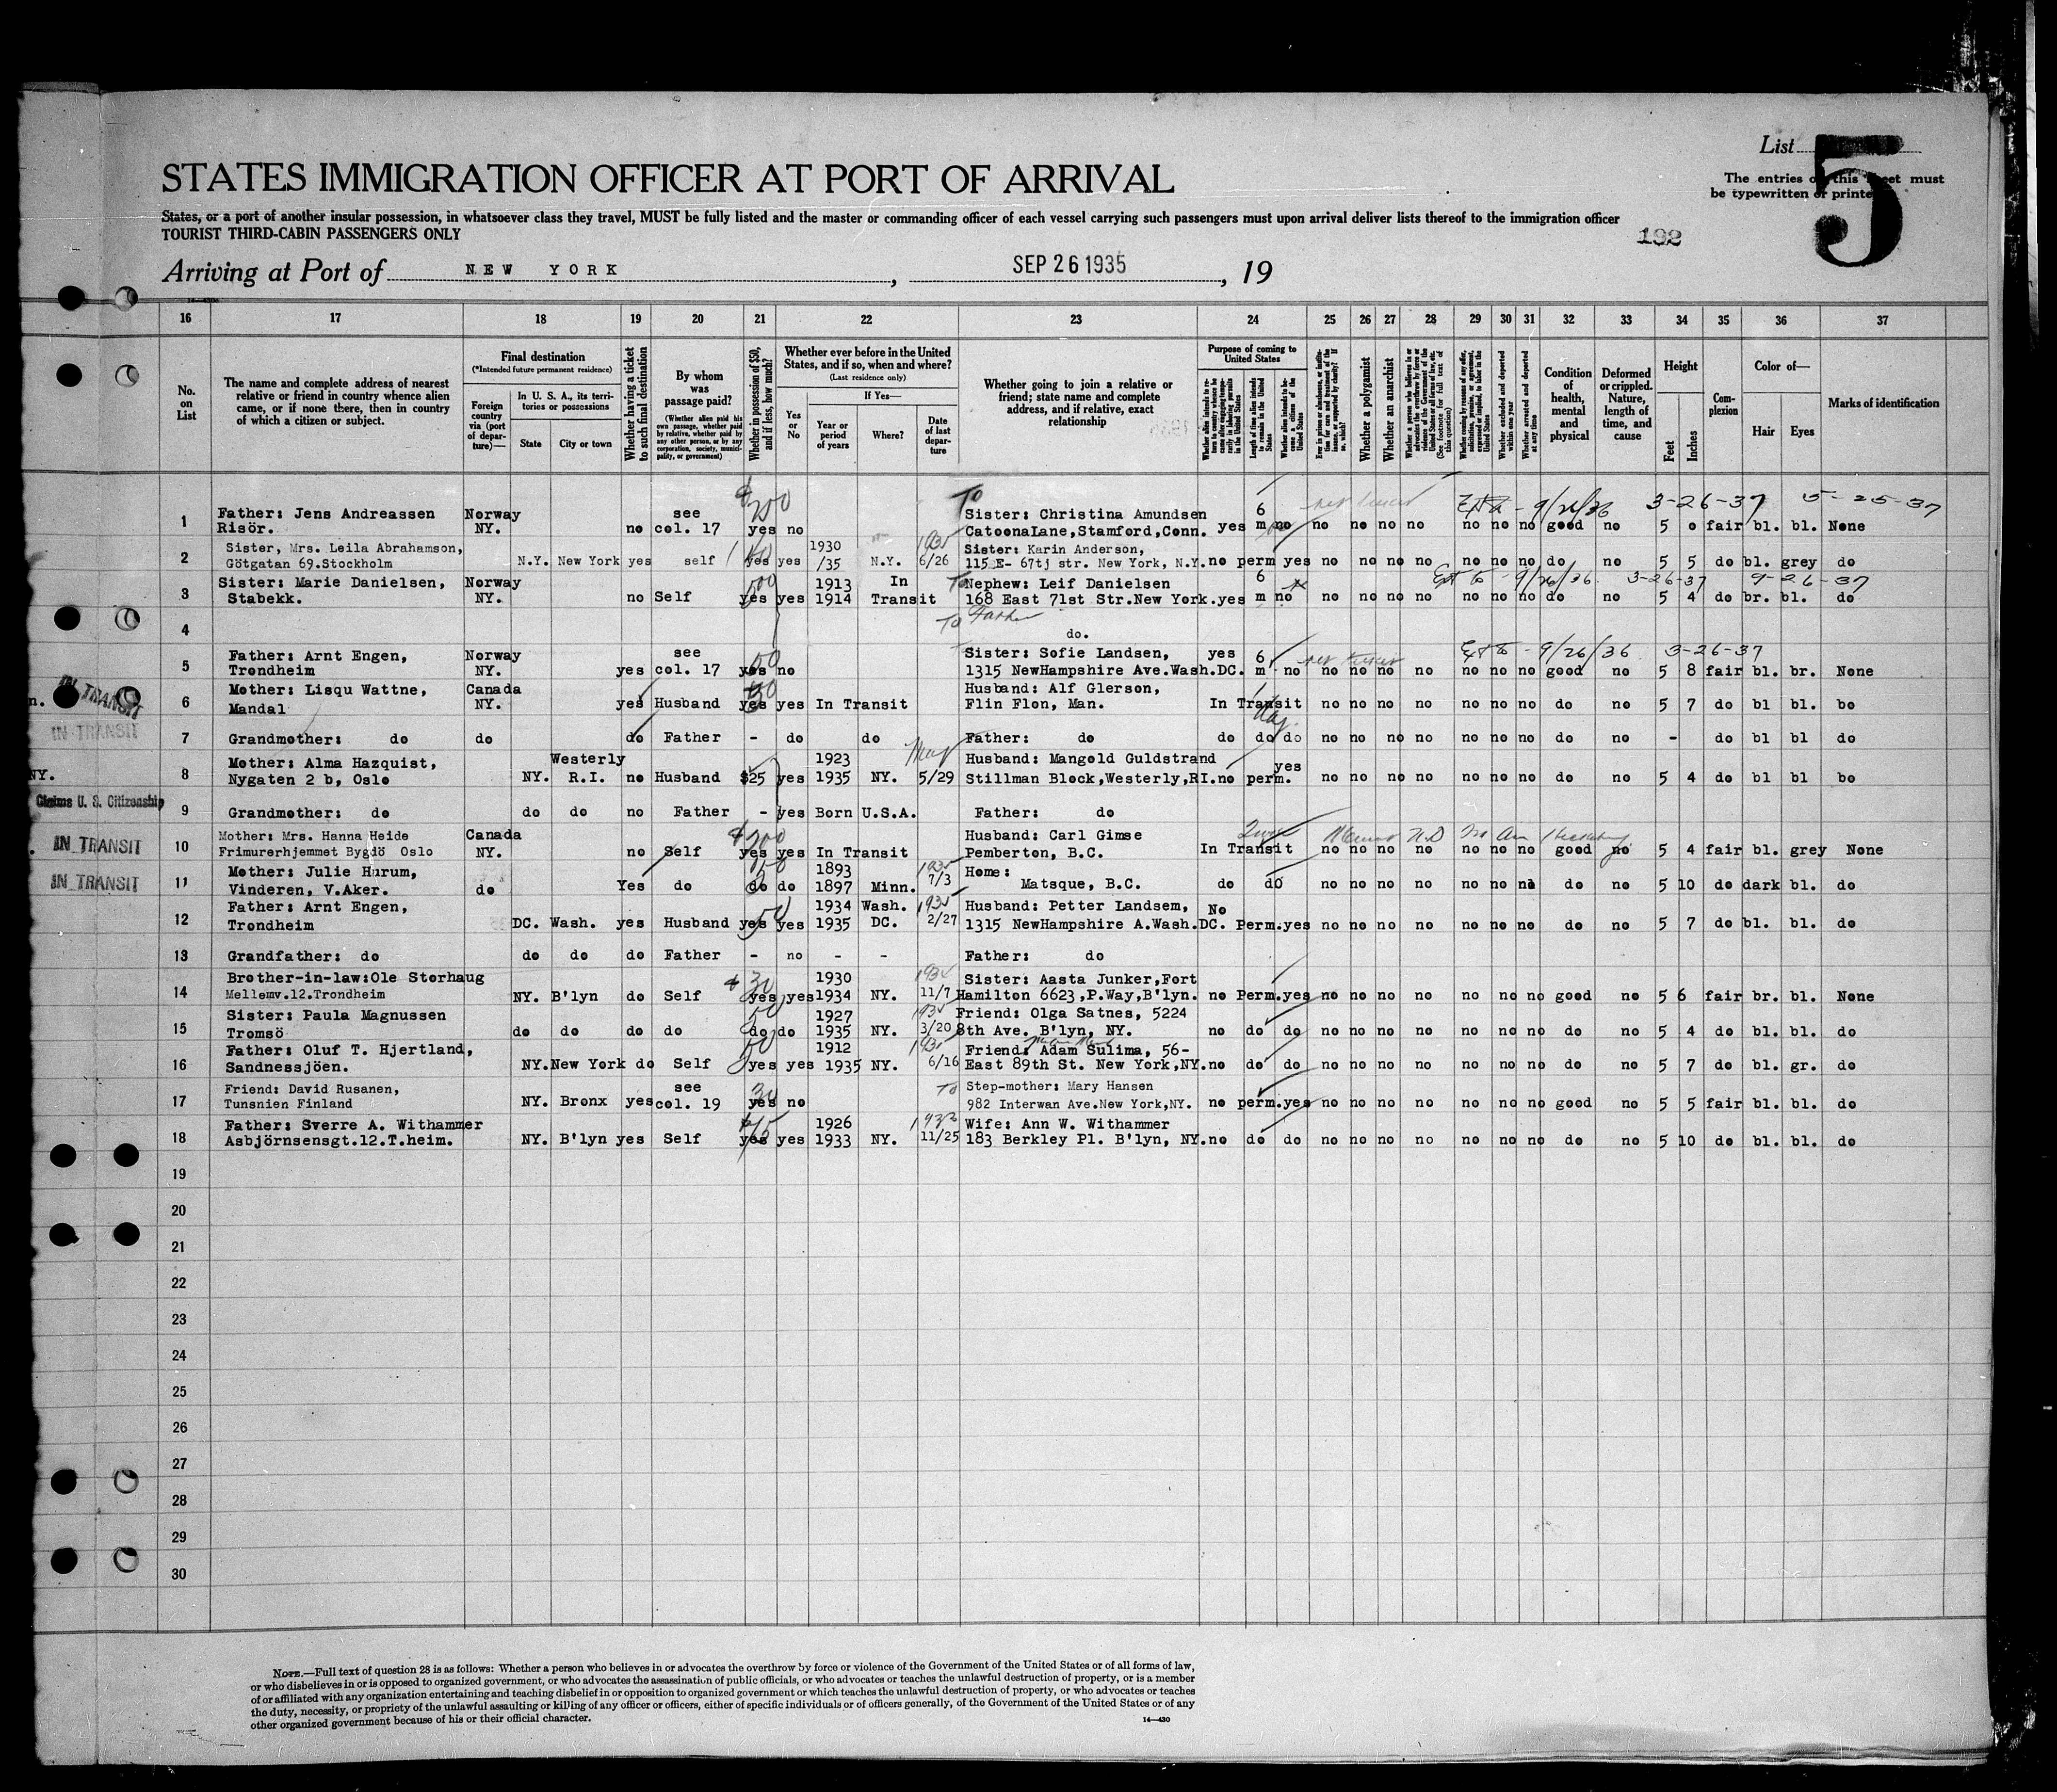 List
5
The entries on this sheet must
be typewritten or printed
STATES IMMIGRATION OFFICER AT PORT OF ARRIVAL
States, or a port of another insular possession, in whatsoever class they travel, MUST be fully listed and the master or commanding officer of each vessel carrying such passengers must upon arrival deliver lists thereof to the immigration officer
TOURIST THIRD-CABIN PASSENGERS ONLY
192
Arriving at Port of NEW YORK, SEP 26 1935, 19
16 17 18 19 20 21 22 23 24 25 26 27 28 29 30 31 32 33 34 35 36 37
No. on List
The name and complete address of nearest relative or friend in country whence alien came, or if none there, then in country of which a citizen or subject.
Final destination
(*Intended future permanent residence)
Foreign country via (port of departure)—
In U. S. A., its territories or possessions
State
City or town
Whether having a ticket to such final destination
By whom was passage paid?
(Whether alien paid his own passage, whether paid by relative, whether paid by any other person, or by any corporation, society, municipality, or government)
Whether in possession of $50, and if less, how much?
Whether ever before in the United States, and if so, when and where?
(Last residence only)
Yes or No
If Yes—
Year or period of years
Where?
Date of last departure
Whether going to join a relative or friend; state name and complete address, and if relative, exact relationship
Purpose of coming to United States
Whether a polygamist
Whether an anarchist
Condition of health, mental and physical
Deformed or crippled. Nature, length of time, and cause
Height
Feet
Inches
Complexion
Color of—
Hair
Eyes
Marks of identification
$200 To 9/26/36 3-26-37
Father: Jens Andreassen Norway see Sister: Christina Amundsen 6
1 Risör. NY. no col. 17 yes no CatoonaLane,Stamford,Conn. yes m no no no no no no no no good no 5 0 fair bl. bl. None
Sister, Mrs. Leila Abrahamson, 1930 1935 Sister: Karin Anderson,
2 Götgatan 69.Stockholm N.Y. New York yes self yes yes /35 N.Y. 6/26 115 E- 67tj str. New York, N.Y. no perm yes no no no no no no no do no 5 5 do bl. grey do
Sister: Marie Danielsen, Norway 1913 In To Nephew: Leif Danielsen 6 9/26/36 3-26-37 9-26-37
3 Stabekk. NY. no Self yes yes 1914 Transit 168 East 71st Str.New York. yes m no no no no no no no no do no 5 4 do br. bl. do
To Father
4 do.
Father: Arnt Engen, Norway see 50 Sister: Sofie Landsen, yes 6 9/26/36 3-26-37
5 Trondheim NY. yes col. 17 yes no 1315 NewHampshire Ave.Wash.DC. m no no no no no no no no good no 5 8 fair bl. br. None
IN TRANSIT
Mother: Lisqu Wattne, Canada Husband: Alf Glerson,
6 Mandal NY. yes Husband yes yes In Transit Flin Flon, Man. In Transit no no no no no no no do no 5 7 do bl bl. bo
IN TRANSIT
7 Grandmother: do do do Father - do do Father: do do do do no no no no no no no do no - do bl bl do
Mother: Alma Hazquist, Westerly 1923 May Husband: Mangold Guldstrand yes
NY. 8 Nygaten 2 b, Oslo NY. R.I. no Husband $25 yes 1935 NY. 5/29 Stillman Block,Westerly,RI. no perm. no no no no no no no do no 5 4 do bl bl bo
Claims U. S. Citizenship
9 Grandmother: do do do no Father - yes Born U.S.A. Father: do
Mother: Mrs. Hanna Heide Canada $200 Husband: Carl Gimse
IN TRANSIT 10 Frimurerhjemmet Bygdö Oslo NY. no Self yes yes In Transit Pemberton, B.C. In Transit no no no no no no no good no 5 4 fair bl. grey None
Mother: Julie Hurum, 1893 1935 Home:
IN TRANSIT 11 Vinderen, V.Aker. do Yes do do do 1897 Minn. 7/3 Matsque, B.C. do do no no no no no no do no 5 10 do dark bl. do
Father: Arnt Engen, 1934 Wash. 1935 Husband: Petter Landsem, No
12 Trondheim DC. Wash. yes Husband yes yes 1935 DC. 2/27 1315 NewHampshire A.Wash.DC. Perm. yes no no no no no no no do no 5 7 do bl. bl. do
13 Grandfather: do do do do Father - no - - Father: do
Brother-in-law:Ole Storhaug $30 1930 Sister: Aasta Junker,Fort
14 Mellemv.12.Trondheim NY. B'lyn do Self yes yes 1934 NY. 11/7 Hamilton 6623,P.Way,B'lyn. no Perm. yes no no no no no no no good no 5 6 fair br. bl. None
Sister: Paula Magnussen 50 1927 1935 Friend: Olga Satnes, 5224
15 Tromsö do do do do do do 1935 NY. 3/20 8th Ave. B'lyn, NY. no do do no no no no no no no do no 5 4 do bl. bl. do
Father: Oluf T. Hjertland, 1912 Friend: Adam Sulima, 56-
16 Sandnessjöen. NY. New York do Self yes yes 1935 NY. 6/16 East 89th St. New York,NY. no do do no no no no no no no do no 5 7 do bl. gr. do
Friend: David Rusanen, see 30 To Step-mother: Mary Hansen
17 Tunsnien Finland NY. Bronx yes col. 19 yes no 982 Interwan Ave.New York,NY. no perm. yes no no no no no no no good no 5 5 fair bl. bl. do
Father: Sverre A. Withammer 1926 1933 Wife: Ann W. Withammer
18 Asbjörnsensgt.12.T.heim. NY. B'lyn yes Self yes yes 1933 NY. 11/25 183 Berkley Pl. B'lyn, NY. no do do no no no no no no no do no 5 10 do bl. bl. do
19
20
21
22
23
24
25
26
27
28
29
30
NOTE.—Full text of question 28 is as follows: Whether a person who believes in or advocates the overthrow by force or violence of the Government of the United States or of all forms of law,
or who disbelieves in or is opposed to organized government, or who advocates the assassination of public officials, or who advocates or teaches the unlawful destruction of property, or is a member
of or affiliated with any organization entertaining and teaching disbelief in or opposition to organized government or which teaches the unlawful destruction of property, or who advocates or teaches
the duty, necessity, or propriety of the unlawful assaulting or killing of any officer or officers, either of specific individuals or of officers generally, of the Government of the United States or of any
other organized government because of his or their official character.
14—430